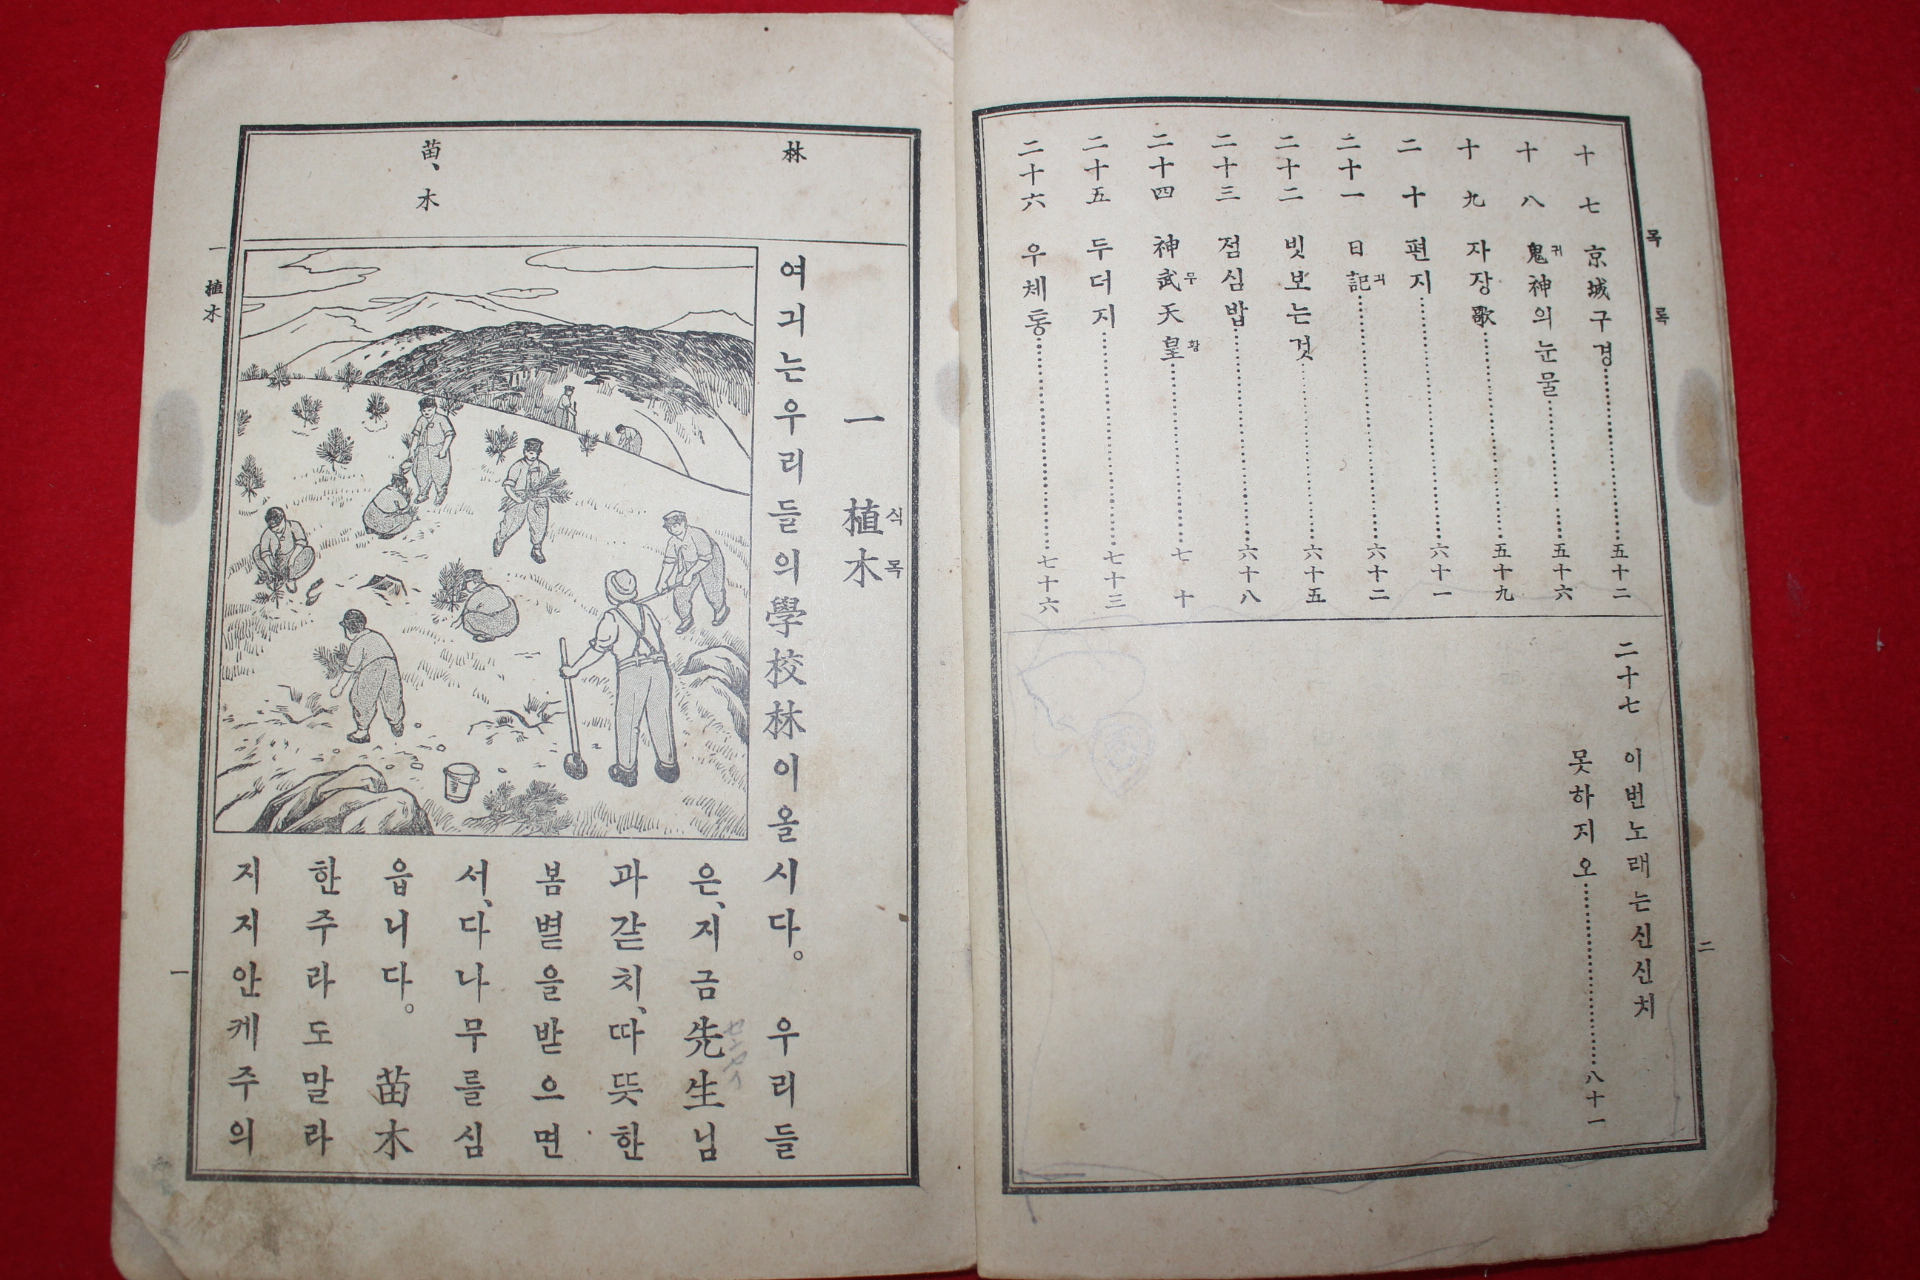 목록
二
十七 京城구경……五十二
十八 鬼神의눈물……五十六
귀
十九 자장歌……五十九
二十 편지……六十一
二十一 日記……六十二
긔
二十二 빗보는것……六十五
二十三 점심밥……六十八
二十四 神武天皇……七十
무 황
二十五 두더지……七十三
二十六 우체통……七十六
二十七 이번노래는신신치
못하지오……八十一
林
苗、木
一 植木
식목
여긔는우리들의學校林이올시다。 우리들
은、지금先生님
センセイ
과갇치、따뜻한
봄볕을받으면
서、다나무를심
읍니다。 苗木
한주라도말라
지지안케주의
一 植木
一